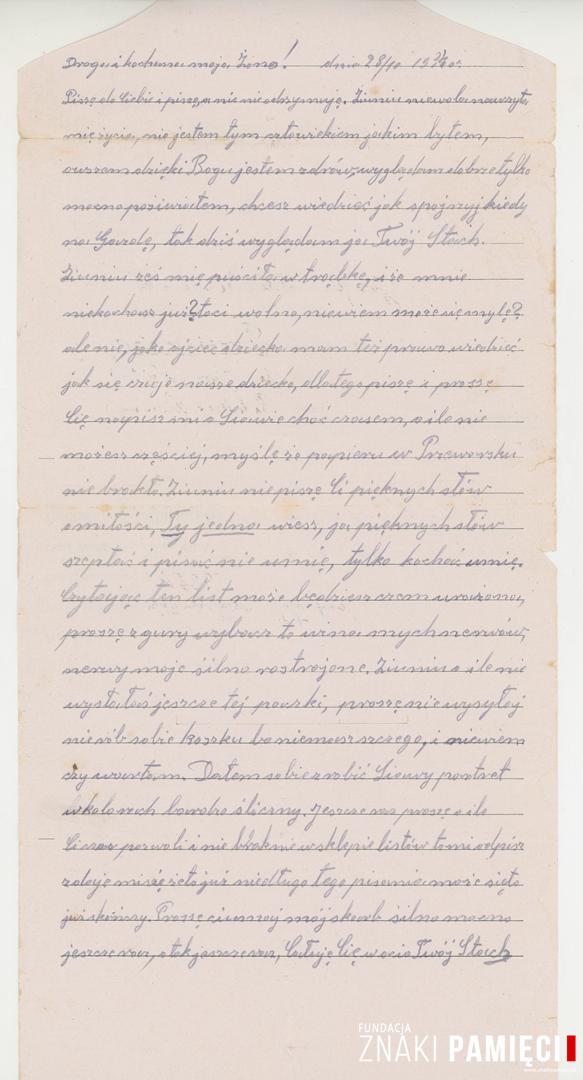 Droga i kochana moja Żono! dnia 28/10
Piszę do Ciebie i piszę, a nic nie odzymuję. Ziuniu niewola nauczyła
mię życia, nie jestem tym człowiekiem jakim byłem,
owszem dzięki Bogu jestem zdrów, wyglądam dobrze tylko
mocno posiwiałem, chcesz wiedzieć jak spojrzyj kiedy
na Gazdę, tak dziś wyglądam ja Twój Stach.
Ziuniu ześ mię puściła w trąbkę, i że mnie
niekochasz już? toci wolno, niewiem może się mylę?
ale nie, jako ojciec dziecka mam też prawo wiedzieć
jak się czuje nasze dziecko, dlatego piszę i proszę
Cię napisz mi o Siawie choć czasem, o ile nie
możesz częściej, myślę że papieru w Przeworsku
nie brakło. Ziuniu niepiszę Ci pięknych słów
o miłości, Ty jedna wiesz, ja pięknych słów
szeptać i pisać nie umię, tylko kochać umię.
Czytając ten list może będziesz czem urażona,
proszę z gury wybacz to wina mych nerwów,
nerwy moje silno rostrojone. Ziuniu o ile nie
wysłałaś jeszcze tej paczki, proszę nie wysyłaj
nie rób sobie kosztu bo niemasz szczego, i niewiem
czy wartam. Dałem sobie zrobić Siawy portret
w kolorach bardzo śliczny. Jeszcze raz proszę o ile
Ci czas pozwoli i nie braknie w sklepie listów to mi odpisz
zdaje mi się że to już niedługo tego pisania może się to
już skończy. Proszę ciumaj mój skarb silno mocno
jeszcze raz, o tak jeszcze raz, Całuję Cię w ocia Twój Stach
FUNDACJA
ZNAKI PAMIĘCI